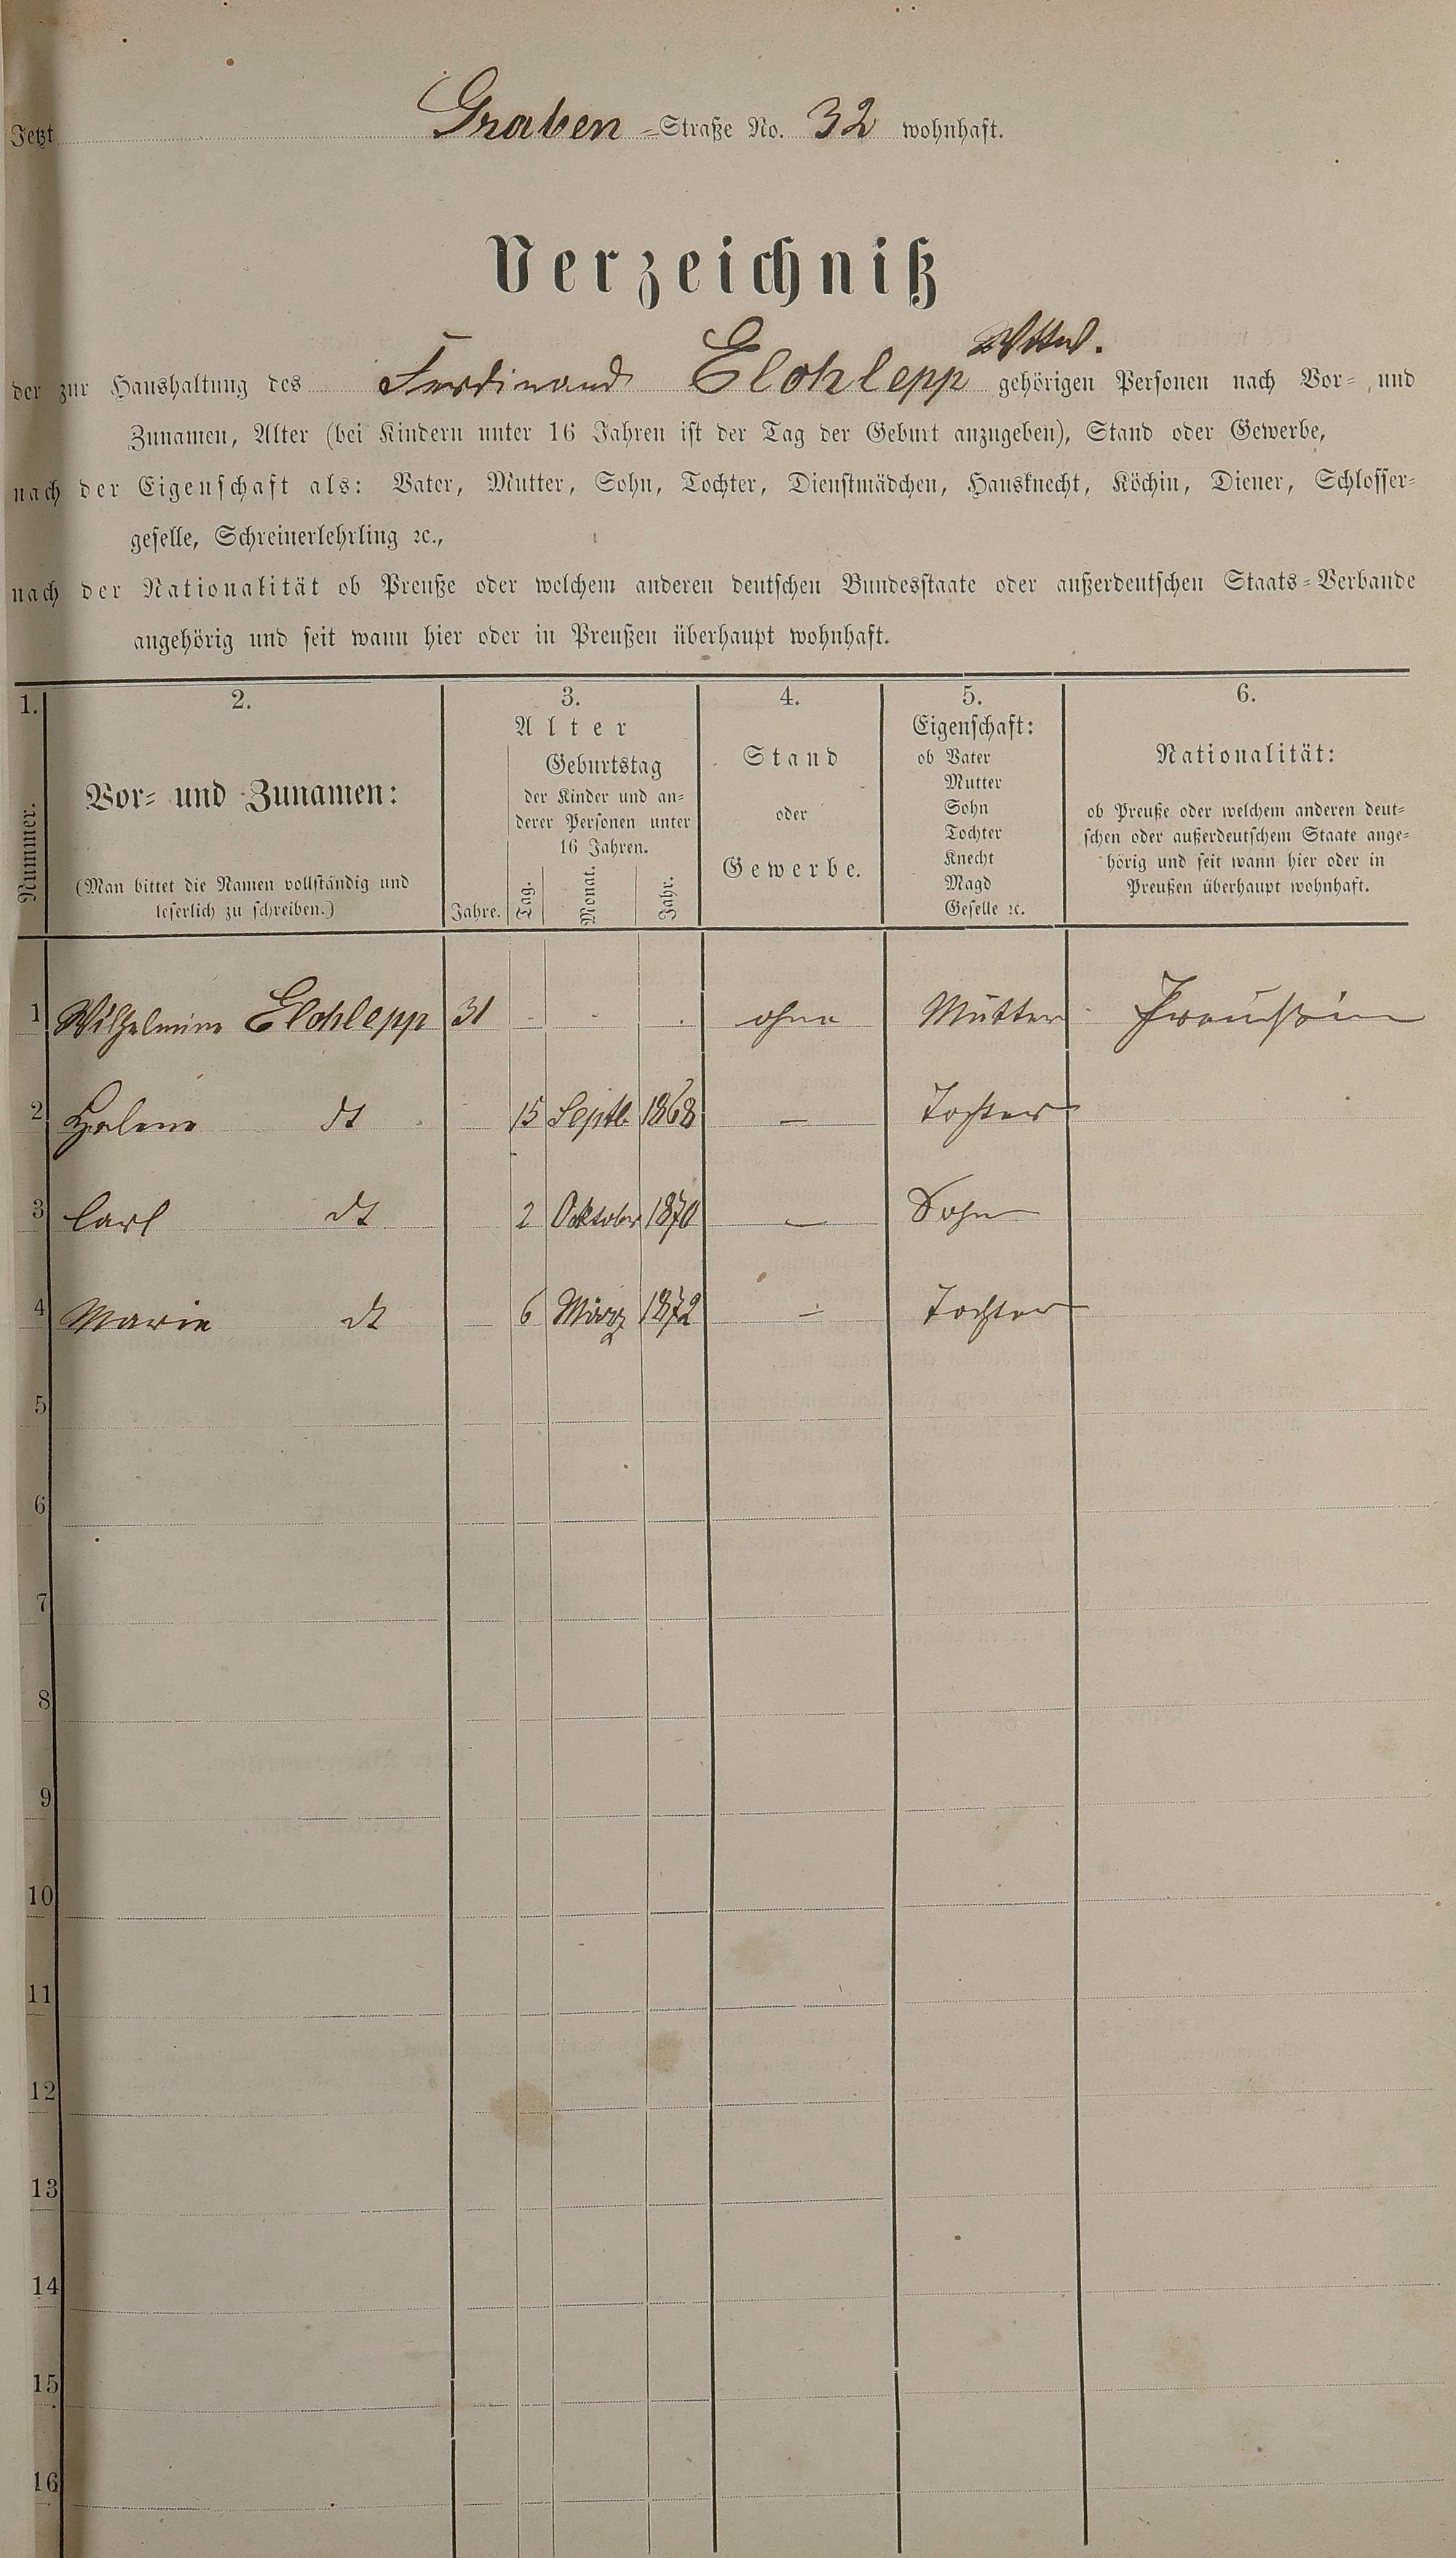 Jetzt Graben-Straße No. 32 wohnhaft.
Verzeichniß
Wttw.
der zur Haushaltung des Ferdinand Elohlepp gehörigen Personen nach Vor- und
Zunamen, Alter (bei Kindern unter 16 Jahren ist der Tag der Geburt anzugeben), Stand oder Gewerbe,
nach der Eigenschaft als: Vater, Mutter, Sohn, Tochter, Dienstmädchen, Hausknecht, Köchin, Diener, Schlosser-
geselle, Schreinerlehrling ꝛc.,
nach der Nationalität ob Preuße oder welchem anderen deutschen Bundesstaate oder außerdeutschen Staats-Verbande
angehörig und seit wann hier oder in Preußen überhaupt wohnhaft.
1. 2. 3. 4. 5. 6.
Nummer.
Vor- und Zunamen:
(Man bittet die Namen vollständig und
leserlich zu schreiben.)
Alter
Jahre.
Geburtstag
der Kinder und an-
derer Personen unter
16 Jahren.
Tag. Monat. Jahr.
Stand
oder
Gewerbe.
Eigenschaft:
ob Vater
Mutter
Sohn
Tochter
Knecht
Magd
Geselle ꝛc.
Nationalität:
ob Preuße oder welchem anderen deut-
schen oder außerdeutschem Staate ange-
hörig und seit wann hier oder in
Preußen überhaupt wohnhaft.
1 Wilhelmine Elohlepp 31 . . . ohne Mutter Preussin
2 Helene dt 15 Septb. 1868 — Tochter
3 Carl dt 2 Oktober 1870 — Sohn
4 Marie dt 6 März 1872 — Tochter
5
6
7
8
9
10
11
12
13
14
15
16